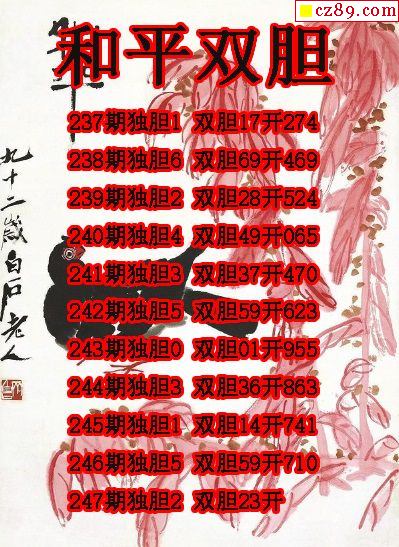 cz89.com
和平
和平双胆
237期独胆1 双胆17开274
238期独胆6 双胆69开469
239期独胆2 双胆28开524
240期独胆4 双胆49开065
241期独胆3 双胆37开470
242期独胆5 双胆59开623
243期独胆0 双胆01开955
244期独胆3 双胆36开863
245期独胆1 双胆14开741
246期独胆5 双胆59开710
247期独胆2 双胆23开
九十二岁白石老人